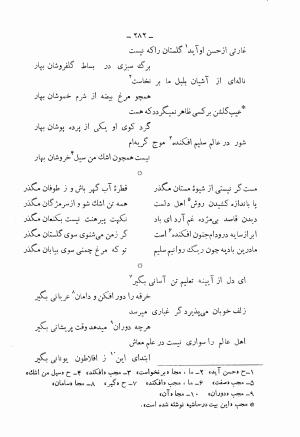 ـ ۲۸۲ ـ
غارتی ازحسن اوآید۱ گلستان راکه نیست
برگ سبزی در بساط گلفروشان بهار
ناله‌ای از آشیان بلبل ما بر نخاست۲
همچو مرغ بیضه از شرم خموشان بهار
*عیب‌گلشن برکسی ظاهر نمیگرددکه هست
گرد کوی او یکی از پرده پوشان بهار
شور در عالم سلیم افکنده۳ موج گریه‌ام
نیست همچون اشک من سیل۴ خروشان بهار
مست گر نیستی از شیوهٔ مستان مگذر
قطرهٔ آب گهر باش و ز طوفان مگذر
پا باندازه کشیدن روش۵ اهل دلست
همه تن اشک شو و ازسرمژگان مگذر
دیدن قاصد بی‌مژده غم آرد ای باد
نکهت پیرهنت نیست بکنعان مگذر
ابر از سایه درو دام جنون افکنده۶ است
گر زمن می‌شنوی سوی گلستان مگذر
مادرین بادیه چون ریگ روانیم سلیم
تو که مرغ چمنی سوی بیابان مگذر
ای دل از آیینه تعلیم تن آسانی بگیر۷
خرقه را دور افکن و دامان۸ عریانی بگیر
زلف خوبان می‌پذیرد گر غباری میرسد
هرچه دوران۹ میدهد وقت پریشانی بگیر
اهل عالم را سواری نیست در علم معاش
ابتدای این۱۰ ز افلاطون یونانی بگیر
۱ـ ح «حسن آید» ۲ـ ما ، مجا «برنخواست» ۳ـ مجب «افکند» ۴ـ ح «سیل من اشک»
۵ـ مجب «صفت» ۶ـ ما ، مجب «افکند» ۷ـ ح «گیر» ۸ـ مجا «سامان»
۹ـ مجب «دوران» ۱۰ـ مجا «آن»
* مجب «این بیت درحاشیه نوشته شده است»